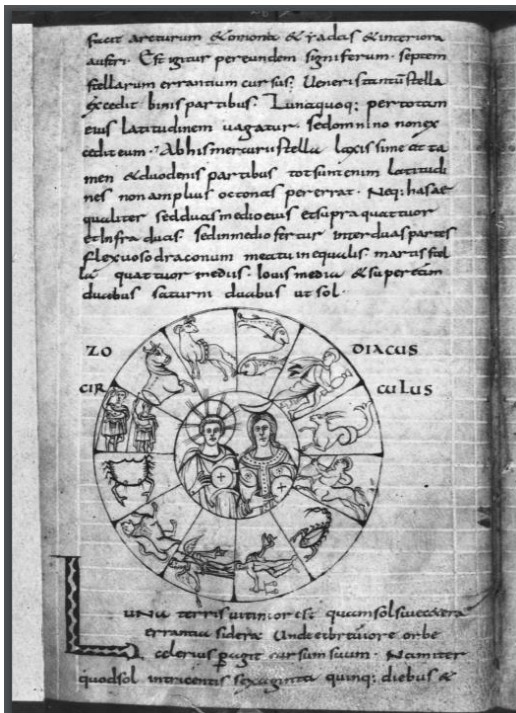 facit arcturum & & interiora
austri. Est igitur per eundem signiferum. septem
stellarum errantium cursus. Ueneris tantū stella
excedit binis partibus. Luna quoq; per totam
eius latitudinem uagatur. sed omnino non ex
cedit eum. Ab his mercurii stella laxissime ut ta
men & duodenis partibus tot sunt enim latitudi
nes non amplius octonas pererrat. Neq: has ae
qualiter sed duas medio eius et supra quattuor
et infra duas. sed in medio fertur inter duas partes
flexuoso draconum meatu inequalis. martis stel
la quattuor mediis. Iouis media & super eam
duabus saturni duabus ut sol.
ZO DIACUS
CIR CULUS
LUNA terris uicinior est quam sol siue cetera
errantia sidera. Unde et breuiore orbe
celerius pagit cursum suum. Nam iter
quod sol in trecentis sexaginta quinq; diebus &